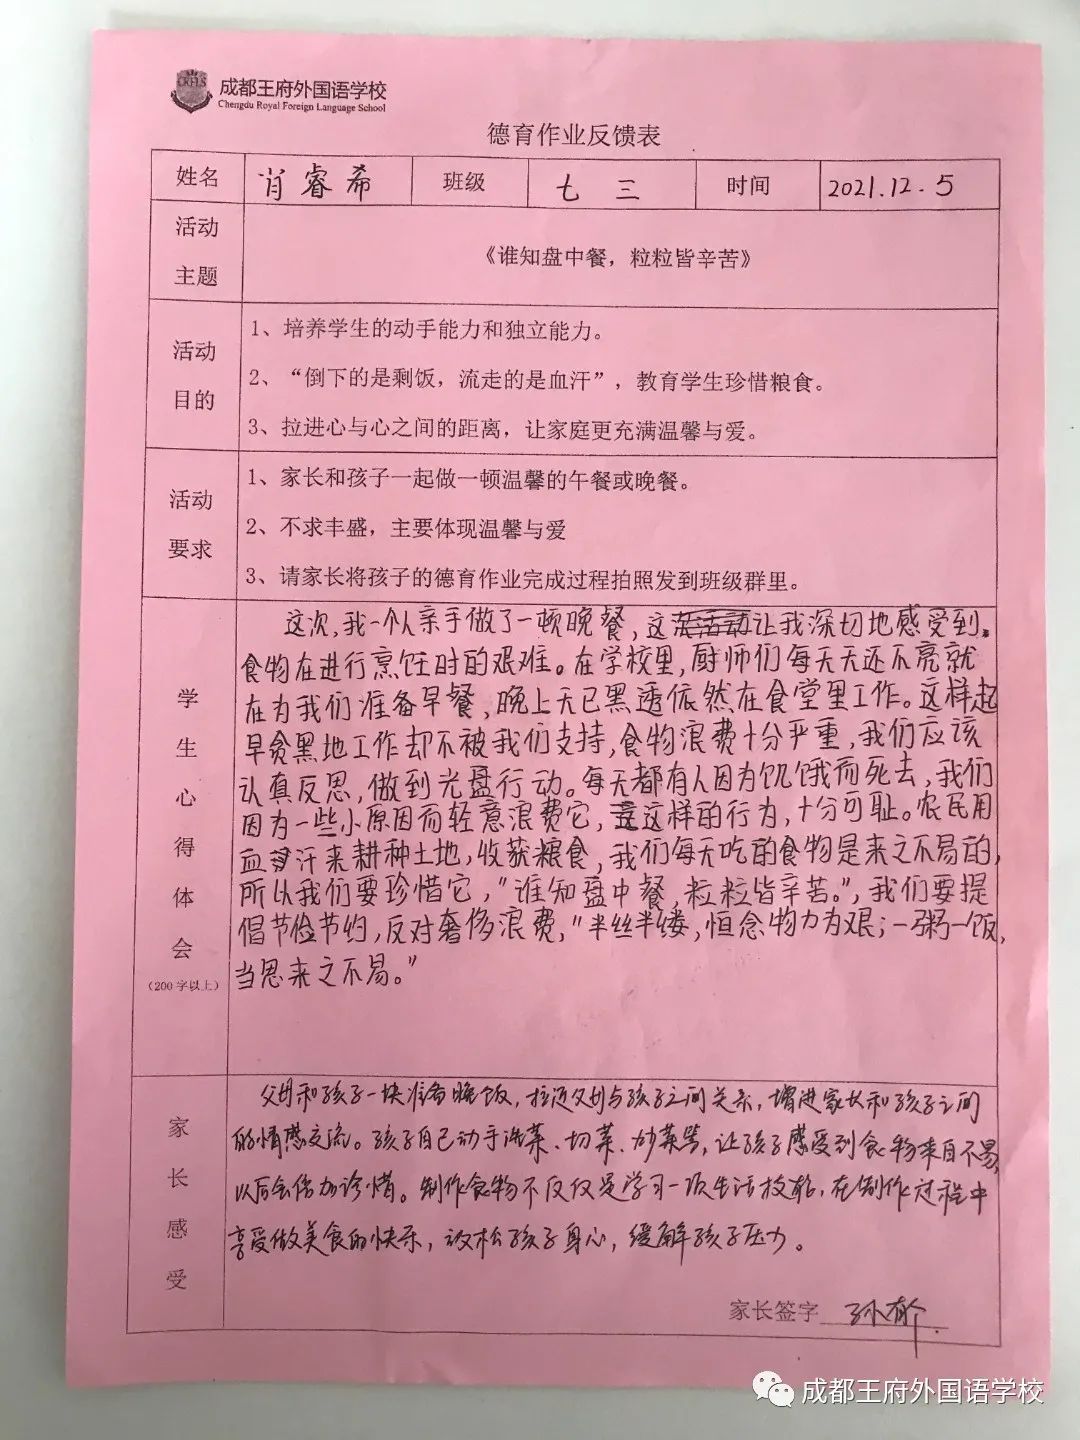 成都王府外国语学校
Chengdu Royal Foreign Language School
德育作业反馈表
姓名 肖睿希 班级 七三 时间 2021.12.5
活动主题 《谁知盘中餐，粒粒皆辛苦》
活动目的
1、培养学生的动手能力和独立能力。
2、“倒下的是剩饭，流走的是血汗”，教育学生珍惜粮食。
3、拉进心与心之间的距离，让家庭更充满温馨与爱。
活动要求
1、家长和孩子一起做一顿温馨的午餐或晚餐。
2、不求丰盛，主要体现温馨与爱
3、请家长将孩子的德育作业完成过程拍照发到班级群里。
学生心得体会
（200字以上）
这次，我一个人亲手做了一顿晚餐，这让我深切地感受到
食物在进行烹饪时的艰难。在学校里，厨师们每天天还不亮就
在为我们准备早餐，晚上天已黑透依然在食堂里工作。这样起
早贪黑地工作却不被我们支持，食物浪费十分严重，我们应该
认真反思，做到光盘行动。每天都有人因为饥饿而死去，我们
因为一些小原因而轻意浪费它，这样的行为，十分可耻。农民用
血汗来耕种土地，收获粮食，我们每天吃的食物是来之不易的，
所以我们要珍惜它，“谁知盘中餐，粒粒皆辛苦。”，我们要提
倡节俭节约，反对奢侈浪费，“半丝半缕，恒念物力为艰；一粥一饭，
当思来之不易。”
家长感受
父母和孩子一块准备晚饭，拉近父母与孩子之间关系，增进家长和孩子之间
的情感交流。孩子自己动手洗菜、切菜、炒菜等，让孩子感受到食物来自不易，
以后会倍加珍惜。制作食物不仅仅是学习一项生活技能，在制作过程中
享受做美食的快乐，放松孩子身心，缓解孩子压力。
家长签字 孙郁
成都王府外国语学校